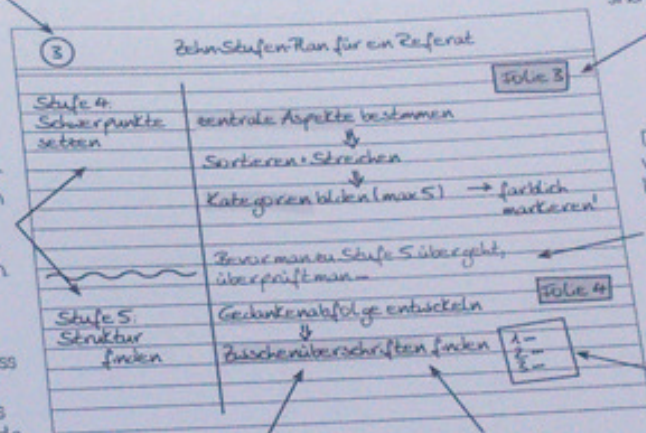 3
Zehn-Stufen-Plan für ein Referat
Folie 3
Stufe 4:
Schwerpunkte
setzen
zentrale Aspekte bestimmen
Sortieren + Streichen
Kategorien bilden (max 5) → farblich
markieren!
Bevor man zu Stufe 5 übergeht,
überprüft man –
Folie 4
Stufe 5:
Struktur
finden
Gedankenabfolge entwickeln
Zwischenüberschriften finden
1 –
2 –
3 –